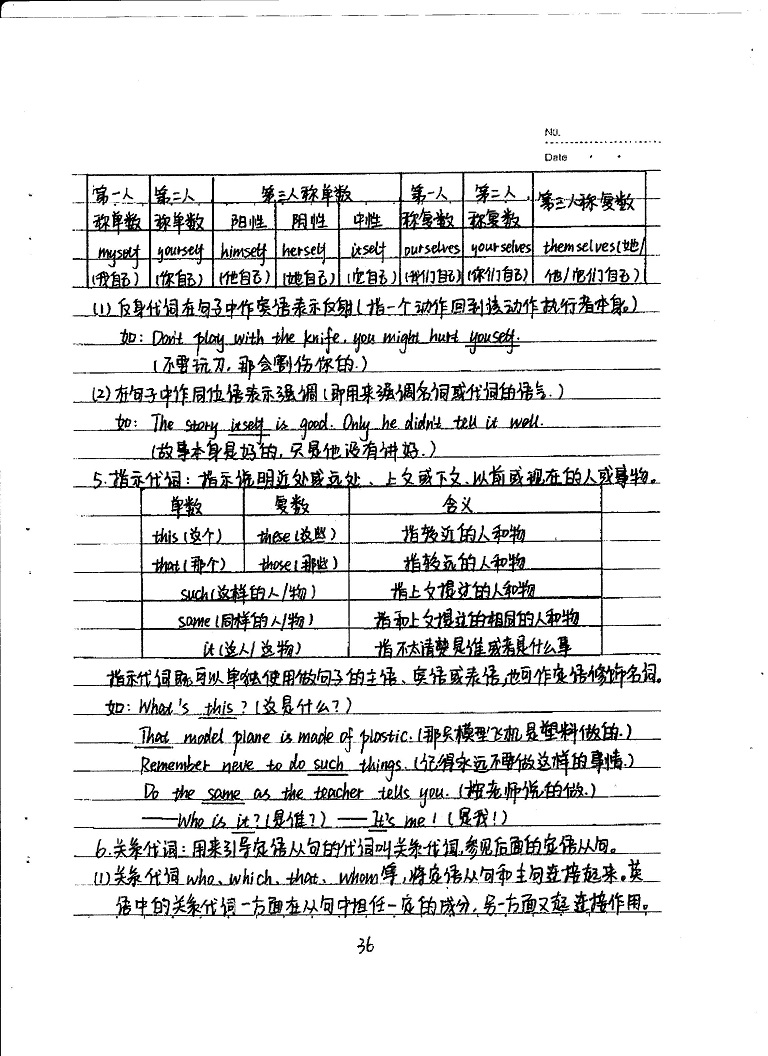 No.
Date
第一人 第二人 第三人称单数 第一人 第二人 第三人称复数
称单数 称单数 阳性 阴性 中性 称复数 称复数
myself yourself himself herself itself ourselves yourselves themselves(她/
(我自己) (你自己) (他自己) (她自己) (它自己) (我们自己) (你们自己) 他/它们自己)
(1)反身代词在句子中作宾语表示反射(指一个动作回到该动作执行者本身。)
如: Don't play with the knife, you might hurt youself.
(不要玩刀,那会割伤你的.)
(2)在句子中作同位语表示强调(即用来强调名词或代词的语气.)
如: The story itself is good. Only he didn't tell it well.
(故事本身是好的,只是他没有讲好.)
5.指示代词:指示说明近处或远处、上文或下文、以前或现在的人或事物。
单数 复数 含义
this(这个) these(这些) 指较近的人和物
that(那个) those(那些) 指较远的人和物
such(这样的人/物) 指上文提过的人和物
same(同样的人/物) 指和上文提过的相同的人和物
it(这人/这物) 指不太清楚是谁或者是什么事
指示代词既可以单独使用做句子的主语、宾语或表语,也可作定语修饰名词。
如: What's this?(这是什么?)
That model plane is made of plastic.(那只模型飞机是塑料做的.)
Remember neve to do such things.(记得永远不要做这样的事情.)
Do the same as the teacher tells you.(按老师说的做.)
——Who is it?(是谁?) ——It's me!(是我!)
6.关系代词:用来引导定语从句的代词叫关系代词,参见后面的定语从句。
(1)关系代词who、which、that、whom等,将定语从句和主句连接起来。英
语中的关系代词一方面在从句中担任一定的成分,另一方面又起连接作用。
36